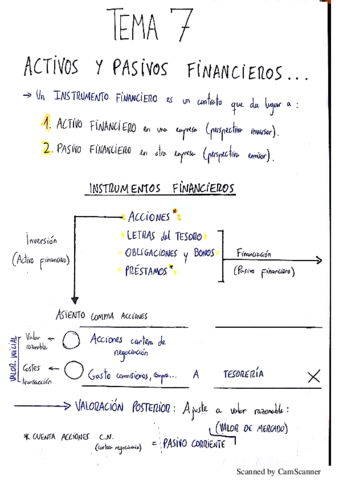 TEMA 7
ACTIVOS Y PASIVOS FINANCIEROS...
→ Un INSTRUMENTO FINANCIERO es un contrato que da lugar a:
1. ACTIVO FINANCIERO en una empresa (perspectiva inversor).
2. PASIVO FINANCIERO en otra empresa (perspectiva emisor).
INSTRUMENTOS FINANCIEROS
ACCIONES*
LETRAS del TESORO
OBLIGACIONES y BONOS
PRÉSTAMOS*
Inversión
(Activo financiero)
Financiación
(Pasivo financiero)
ASIENTO COMPRA ACCIONES
VALOR. INICIAL
Valor razonable
Acciones cartera de
negociación
Costes transacción
Gasto comisiones, compra... A TESORERÍA X
→ VALORACIÓN POSTERIOR: Ajuste a valor razonable:
(VALOR DE MERCADO)
* CUENTA ACCIONES C.N. = PASIVO CORRIENTE
(cartera negociación)
Scanned by CamScanner